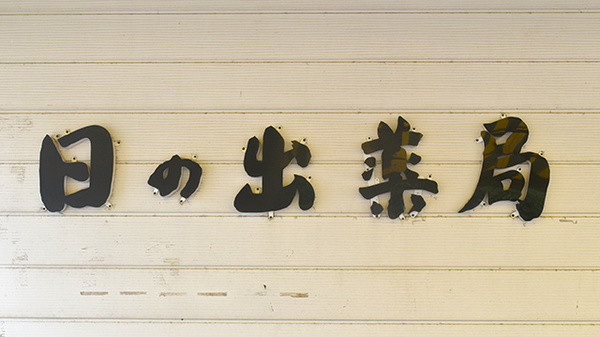 日の出薬局